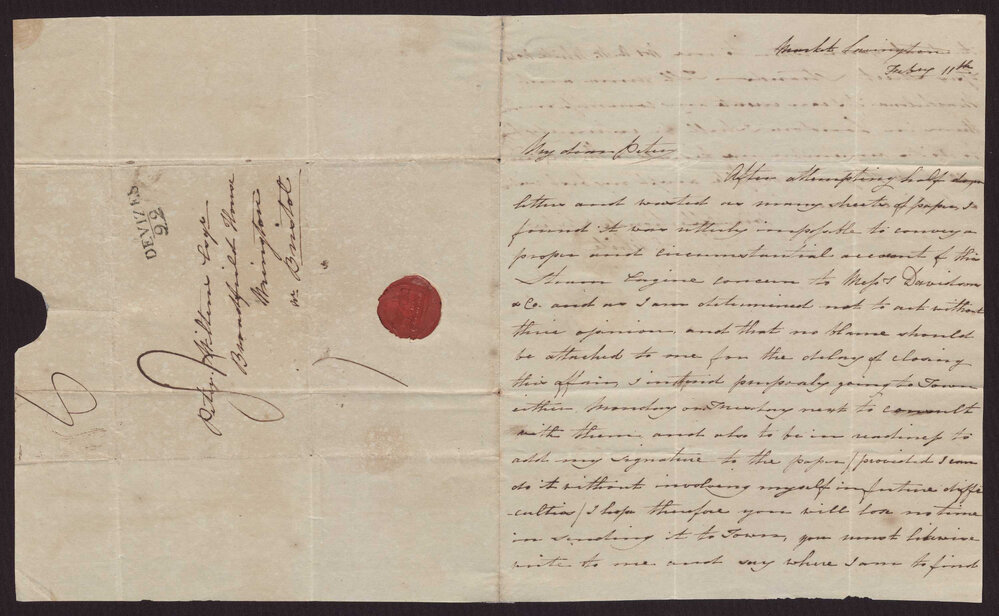 DEVIZES
22
Peter Esqr.
Broadfield House
Wrington
nr. Bristol
6
Market Lavington
Feby 11th
My dear Peter
After attempting half doz
letters and wasted as many sheets of paper, I
found it was utterly impossible to convey a
proper and circumstantial account of this
Steam Engine concern to Messrs Davidson
& Co. and as I am determined not to act without
their opinion, and that no blame should
be attached to me for the delay of closing
this affair, I intend purposely going to Town
either Monday or Tuesday next to consult
with them and also to be in readiness to
add my signature to the paper /provided I can
do it without involving myself in future diffi
culties/ I hope therefore you will lose no time
in sending it to Town, you must likewise
write to me and say where I am to find